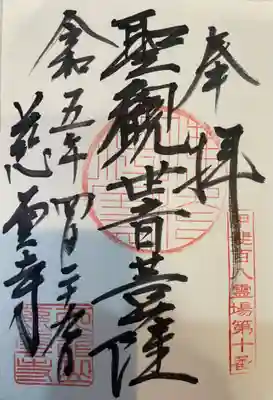 奉拝
甲斐百八霊場第十番
聖觀世音菩薩
令和五年四月二十九日
慈雲寺